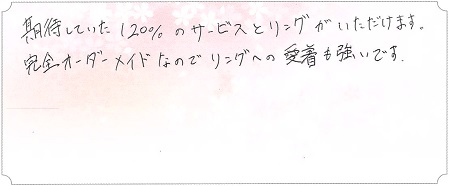 期待していた120%のサービスとリングがいただけます。
完全オーダーメイドなのでリングへの愛着も強いです.